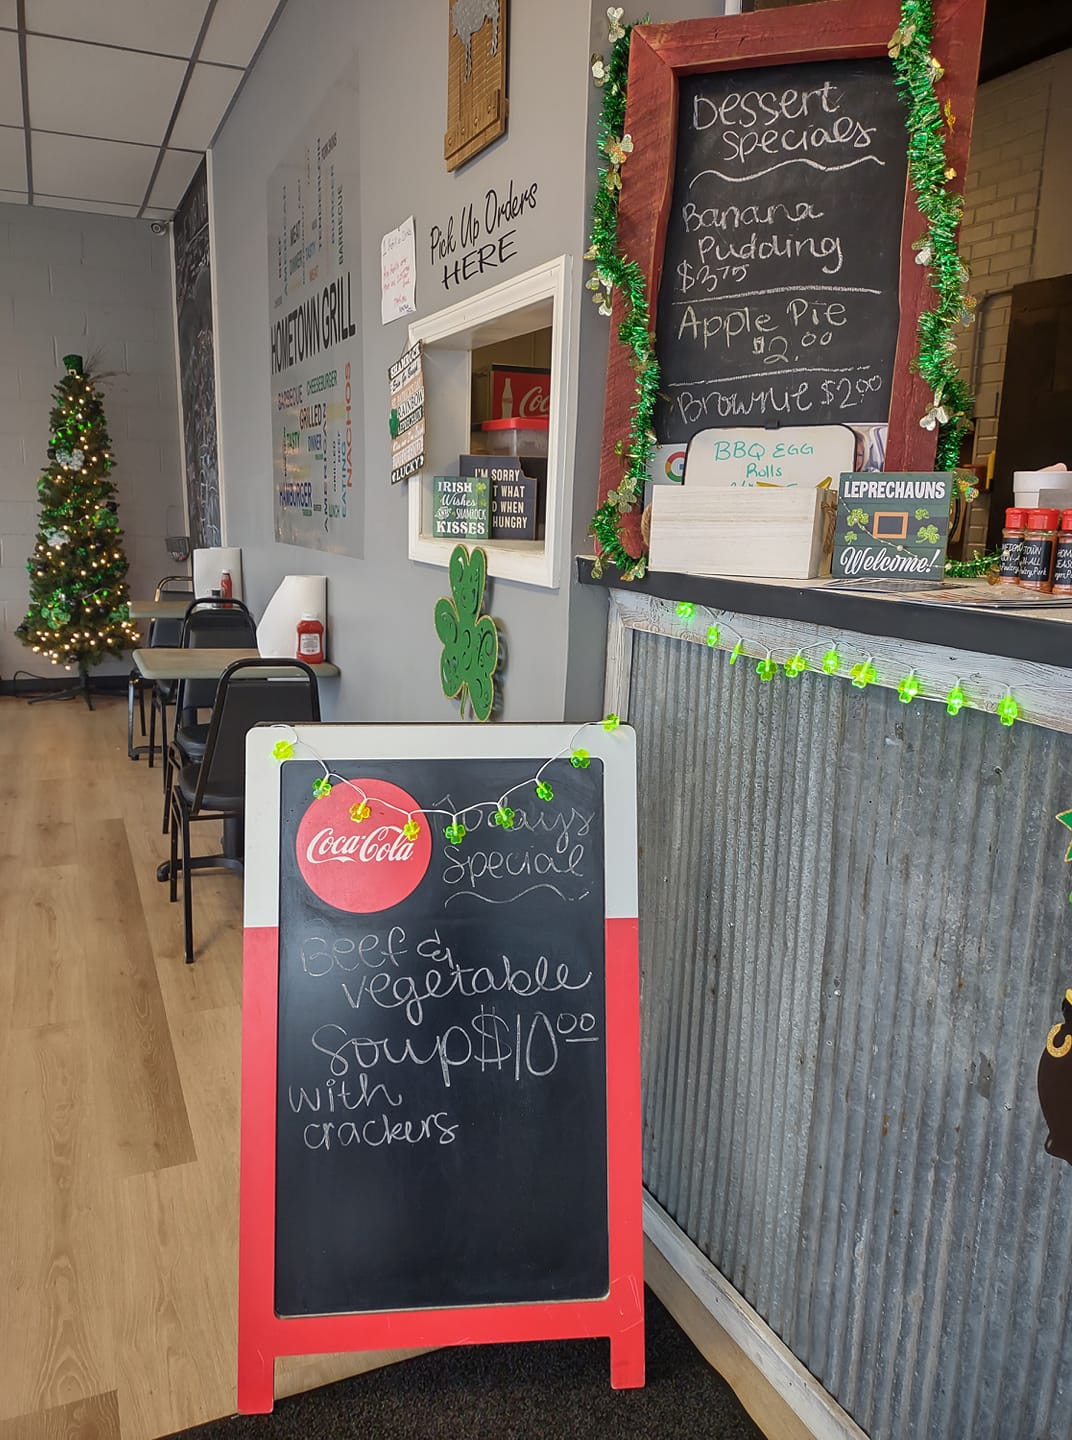 Dessert
Specials
Banana
Pudding
$3.75
Apple Pie
$2.00
Brownie $2.00
BBQ EGG
Rolls
LEPRECHAUNS
Welcome!
Pick Up Orders
HERE
HOMETOWN GRILL
BARBEQUE
CHEESEBURGER
GRILLED
NACHOS
TASTY
DINNER
HAMBURGER
EATING
BARBEQUE
MEAT
DINNER
TASTY
SHAMROCK
RAINBOW
LUCKY
Coca
I'M SORRY
WHAT
WHEN
HUNGRY
IRISH
Wishes
AND SHAMROCK
KISSES
Coca-Cola
Todays
Special
Beef &
vegetable
Soup $10.00
with
crackers